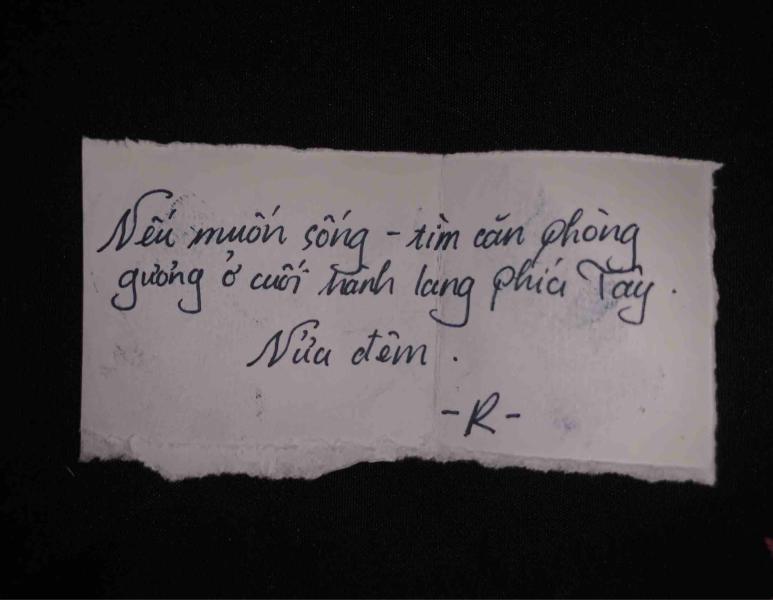 Nếu muốn sống - tìm căn phòng
gương ở cuối hành lang phía Tây.
Nửa đêm.
-R-